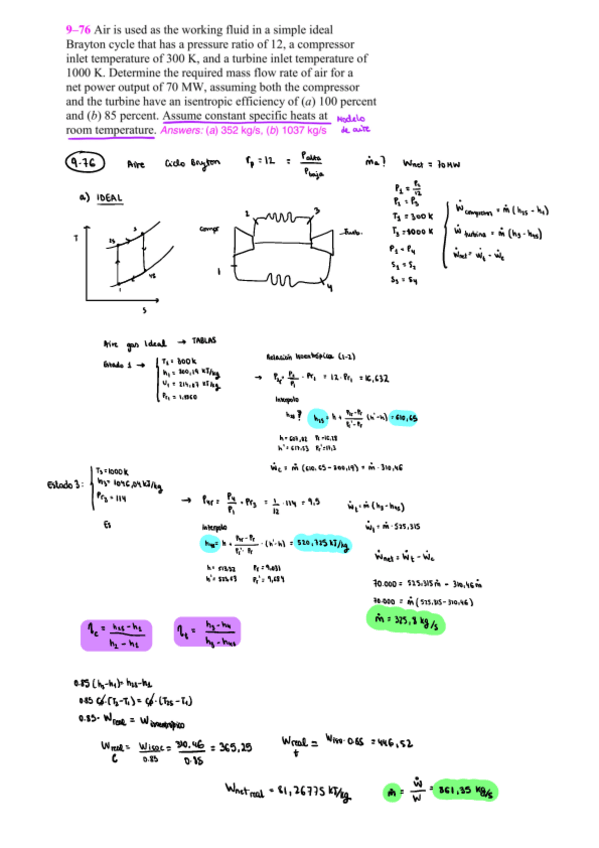 9–76 Air is used as the working fluid in a simple ideal
Brayton cycle that has a pressure ratio of 12, a compressor
inlet temperature of 300 K, and a turbine inlet temperature of
1000 K. Determine the required mass flow rate of air for a
net power output of 70 MW, assuming both the compressor
and the turbine have an isentropic efficiency of (a) 100 percent
and (b) 85 percent. Assume constant specific heats at
room temperature. Answers: (a) 352 kg/s, (b) 1037 kg/s
Modelo
de aire
9-76 Aire Ciclo Brayton rp = 12 = Palta / Pbaja ṁa? Wnet = 70 MW
a) IDEAL
T
S
2s
1
4s
3
1
4
P1 = P4
S1 = S2
S3 = S4
Ẇcompresor = ṁ (h2s - h1)
Ẇturbina = ṁ (h3 - h4s)
Ẇnet = Ẇt - Ẇc
Aire gas Ideal → TABLAS
Estado 1 →
T1 = 300K
h1 = 300,19 kJ/kg
U1 = 214,07 kJ/kg
Pr1 = 1,3860
Relación isentrópica (1-2)
→ Pr2 = P2/P1 · Pr1 = 12 · Pr1 = 16,632
Interpolo
h2s? h2s = h + (Pr-Pr)/(Pr'-Pr) (h'-h) = 610,65
Ẇc = ṁ (610,65 - 300,19) = ṁ · 310,46
Estado 3:
T3 = 1000K
h3 = 1046,04 kJ/kg
Pr3 = 114
Es
→ P4r = P4/P1 · Pr3 = 1/12 · 114 = 9,5
Ẇt = ṁ (h3 - h4s)
Interpolo
h4s = h + (P4r - Pr)/(Pr' - Pr) · (h' - h) = 520,725 kJ/kg
Ẇt = ṁ · 525,315
h = 513,32 Pr = 9,031
h' = 523,63 Pr' = 9,684
Ẇnet = Ẇt - Ẇc
70.000 = 525.315ṁ - 310,46ṁ
70.000 = ṁ (525,315 - 310,46)
ṁ = 325,8 kg/s
ηc = (h2s - h1)/(h2 - h1)
ηt = (h3 - h4)/(h3 - h4s)
0.85 (h2-h1) = h2s-h1
0.85 Cp·(T2-T1) = Cp·(T2s-T1)
0.85 · Wreal = Wisentrópico
Wreal c = Wisoc/0.85 = 310.46/0.85 = 365,25
Wreal t = Wiso · 0.85 = 446,52
Wnet real = 81,26775 kJ/kg
ṁ = Ẇ/W = 861,35 kg/s